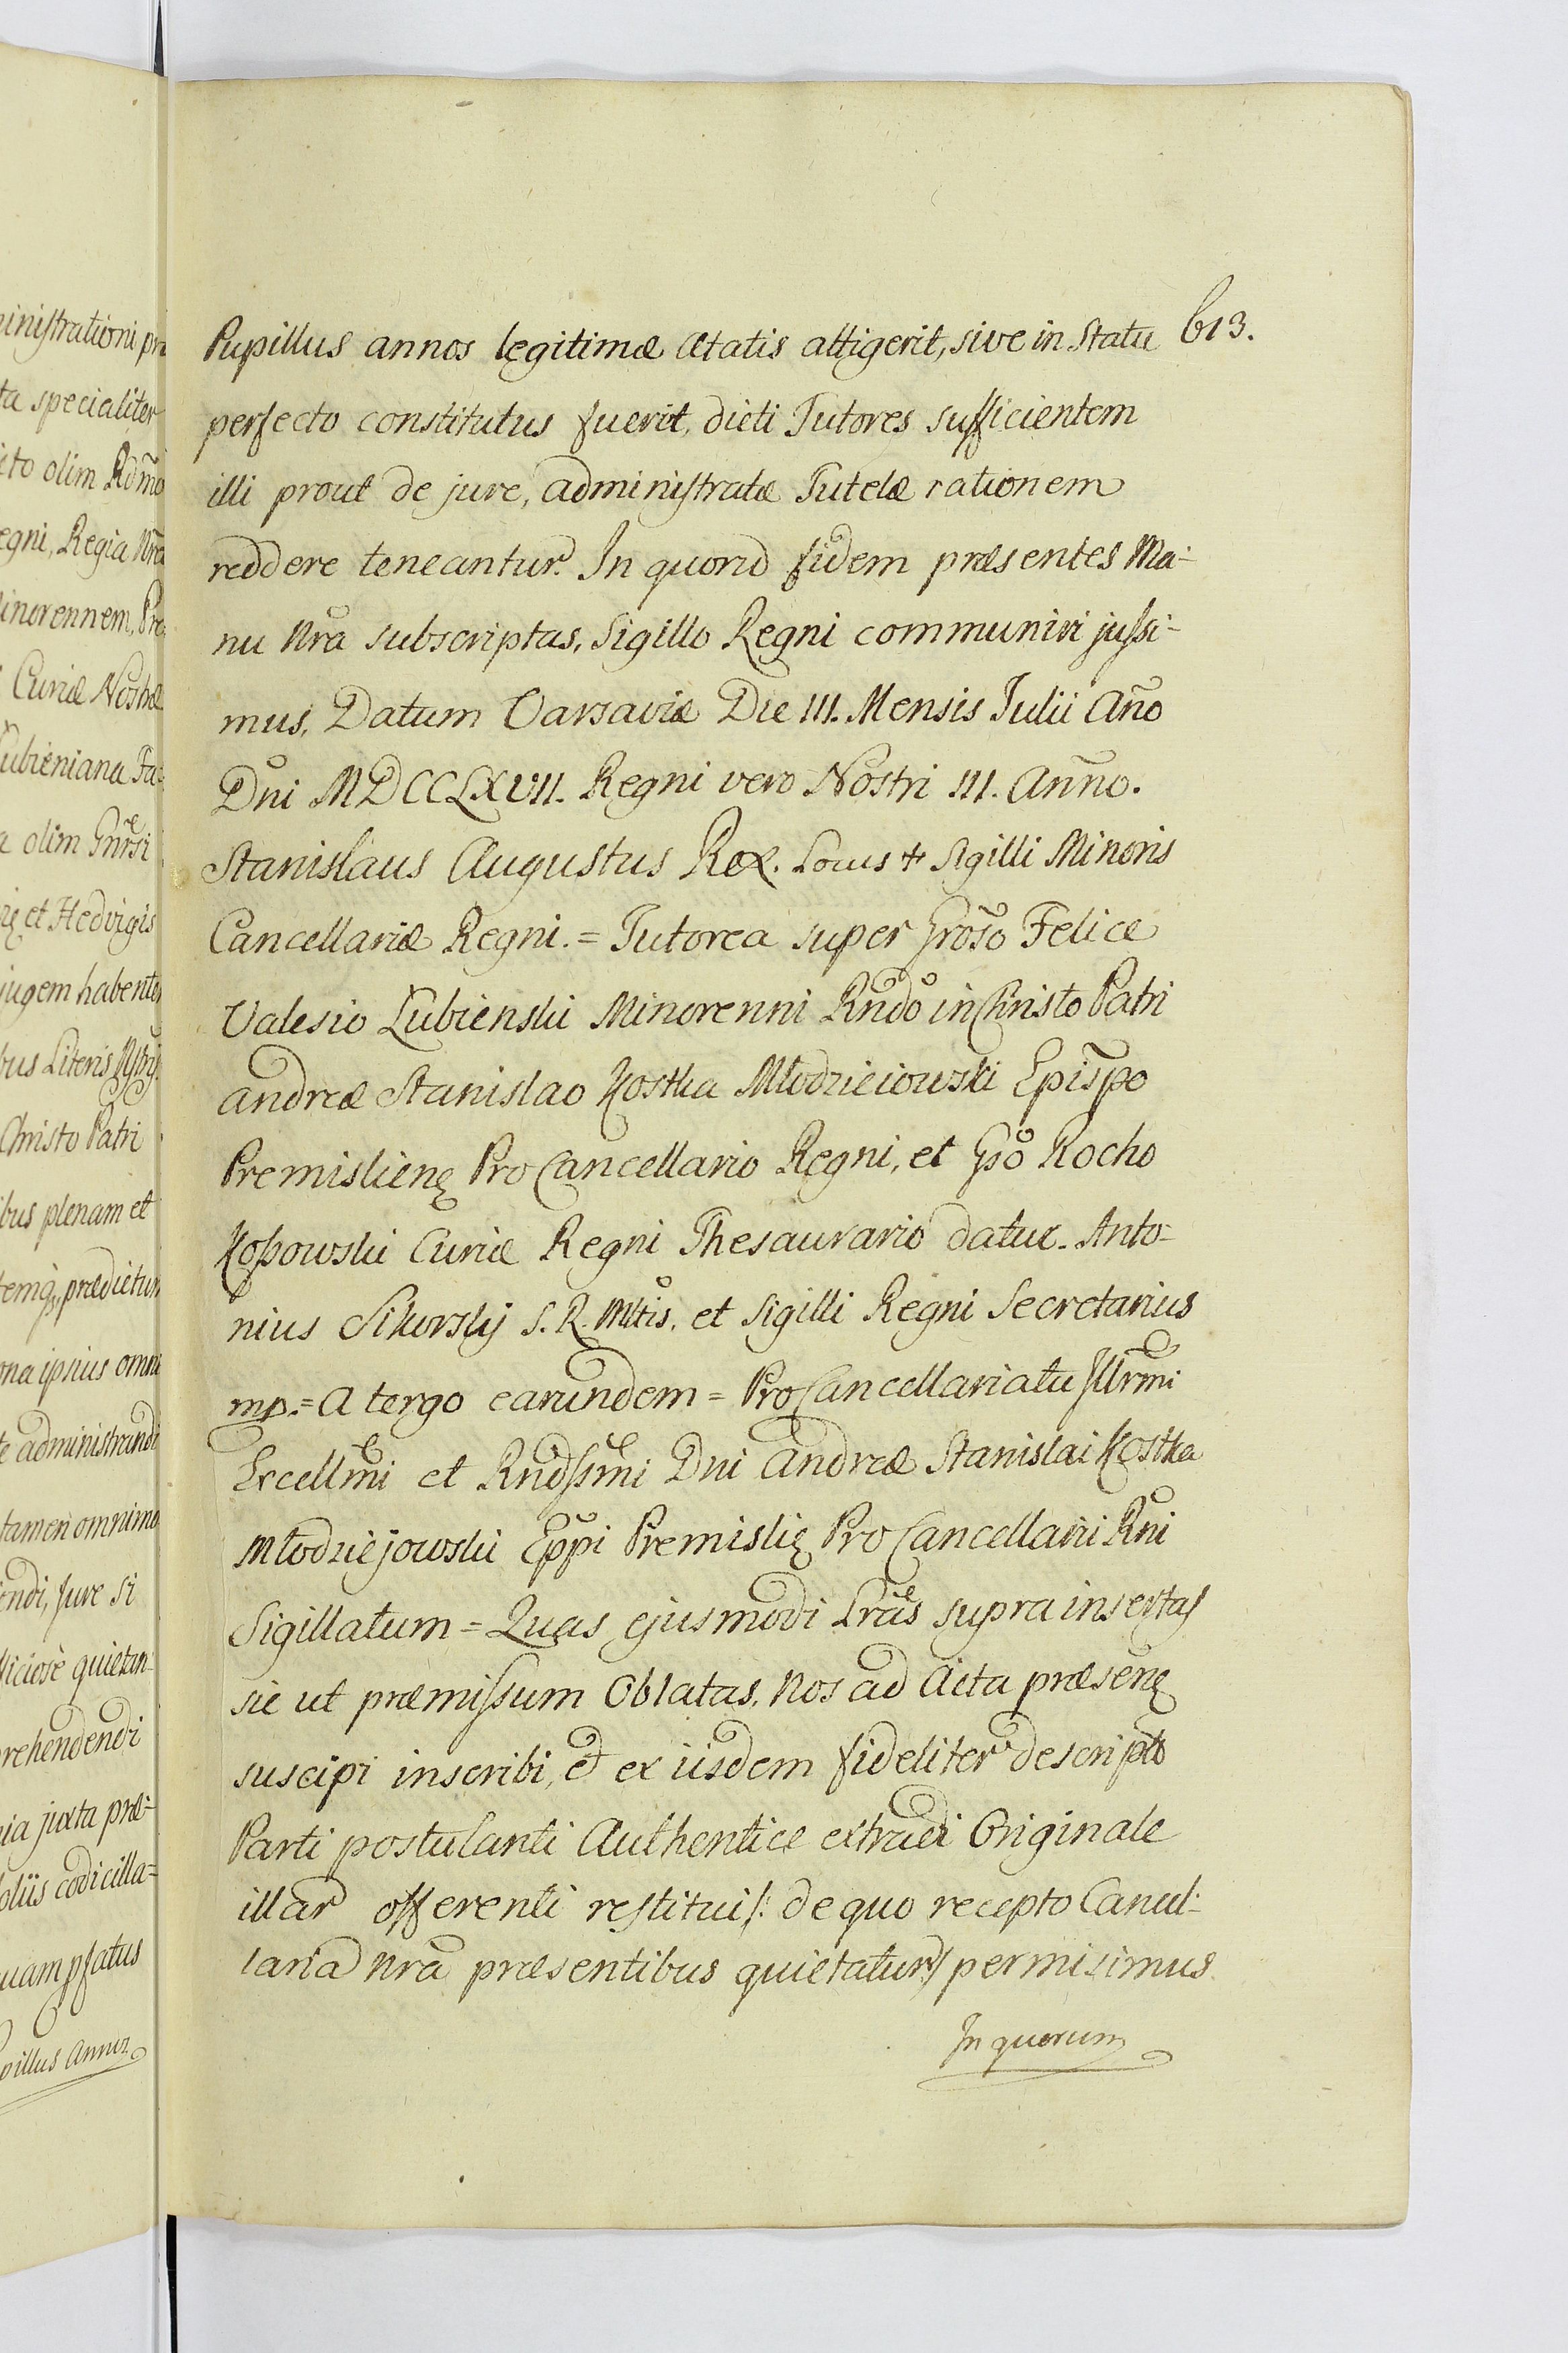 613.
Pupillus annos legitimæ ætatis attigerit, sive in Statu
perfecto constitutus fuerit, dicti Tutores sufficientem
illi prout de jure, administratæ Tutelæ rationem
reddere teneantur. In quord fidem præsentes Ma-
nu Nrã subscriptas, Sigillo Regni communiri jussi-
mus. Datum Varsaviæ Die III. Mensis Julii Año
Dni MDCCLXVII. Regni vero Nostri III. Anno.
Stanislaus Augustus Rex. Locus + Sigilli Minoris
Cancellariæ Regni. = Tutorea super Groso Felice
Valesio Łubienski Minorenni Rndo in Christo Patri
Andreæ Stanislao Kostka Młodzieiowski Epispo
Premislieñ Pro Cancellario Regni, et Gso Rocho
Kossowski Curiæ Regni Thesaurario datur. Anto-
nius Sikorskij S. R. Mtis. et Sigilli Regni Secretarius
mp. = A tergo earundem = Pro Cancellariatu Illrmi
Excellmi et Rndssmi Dni Andreæ Stanislai Kostka
Młodziejowski Eppi Premisli Pro Cancellarii Rni
Sigillatum = Quas ejusmodi Lrãs supra insertas
sic ut præmissum Oblatas, Nos ad Acta præsen
suscipi inscribi, et ex iisdem fideliter descripto
Parti postulanti Authentice extradi Originale
illar offerenti restitui /: de quo recepto Cancel-
laria Nrã præsentibus quietatur :/ permisimus.
In quorum
ministrationi
ta specialiter
olim Rdmo
egni, Regia Nrã
inorennem,
Curiæ Nostræ
ubieniana Fa-
olim Gnrsi
et Hedvigis
jugem habente
bus Literis
Christo Patri
ibus plenam et
prædictum
ona ipsius omni
te administrandi
tamen omnimo
endi, Jure si
diciose quietan-
rehendendi
juxta præ-
oliis codicilla-
uam pfatus
pillus Annor